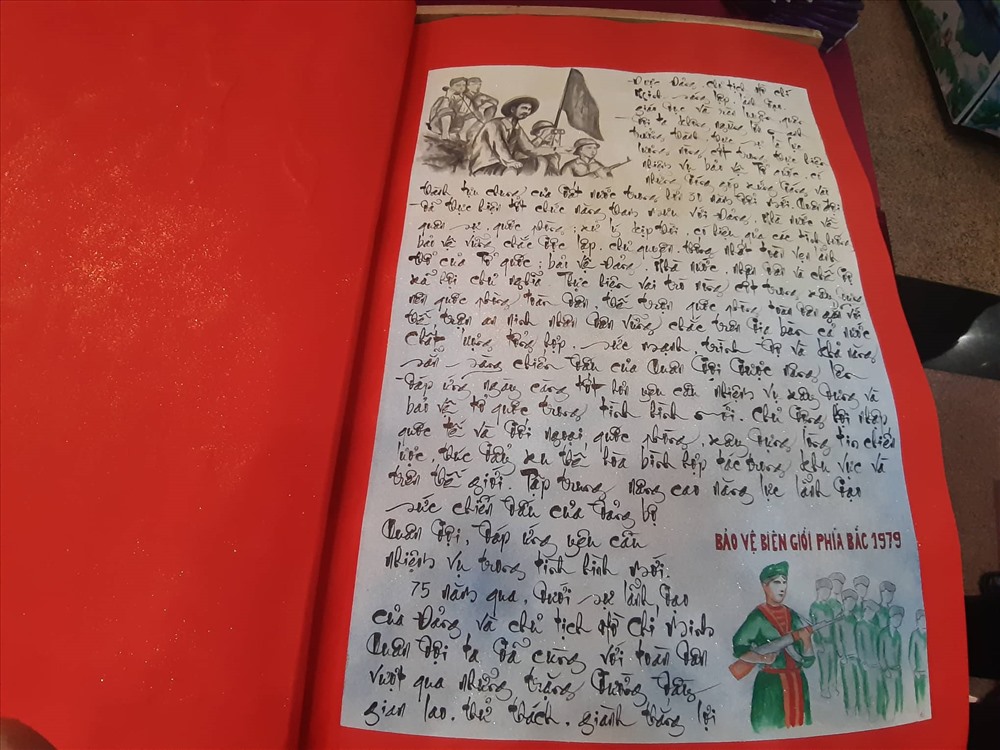 Được Đảng, chủ tịch Hồ Chí
Minh sáng lập, lãnh đạo
giáo dục và rèn luyện, quân
đội ta không ngừng lớn mạnh
trưởng thành, thực sự là lực
lượng nòng cốt trong thực hiện
nhiệm vụ bảo vệ Tổ quốc, có
những đóng góp xứng đáng vào
thành tựu chung của đất nước trong hơn 30 năm đổi mới. Quân đội
đã thực hiện tốt chức năng tham mưu với Đảng, Nhà nước về
quân sự, quốc phòng; xử lý kịp thời, có hiệu quả các tình huống
bảo vệ vững chắc độc lập, chủ quyền thống nhất toàn vẹn lãnh
thổ của Tổ quốc; bảo vệ Đảng, Nhà nước, nhân dân và chế độ
xã hội chủ nghĩa. Thực hiện vai trò nòng cốt trong xây dựng
nền quốc phòng toàn dân, thế trận quốc phòng toàn dân gắn với
thế trận an ninh nhân dân vững chắc trên địa bàn cả nước
chất lượng tổng hợp, sức mạnh, trình độ và khả năng
sẵn sàng chiến đấu của Quân đội được nâng lên
đáp ứng ngày càng tốt hơn yêu cầu nhiệm vụ xây dựng và
bảo vệ tổ quốc trong tình hình mới. Chủ động hội nhập
quốc tế và đối ngoại quốc phòng, xây dựng lòng tin chiến
lược, thúc đẩy xu thế hòa bình hợp tác trong khu vực và
trên thế giới. Tập trung nâng cao năng lực lãnh đạo
sức chiến đấu của Đảng bộ
Quân đội, đáp ứng yêu cầu
nhiệm vụ trong tình hình mới.
75 năm qua, dưới sự lãnh đạo
của Đảng và chủ tịch Hồ Chí Minh
Quân đội ta đã cùng với toàn dân
vượt qua những chặng đường đầy
gian lao, thử thách, giành thắng lợi
BẢO VỆ BIÊN GIỚI PHÍA BẮC 1979